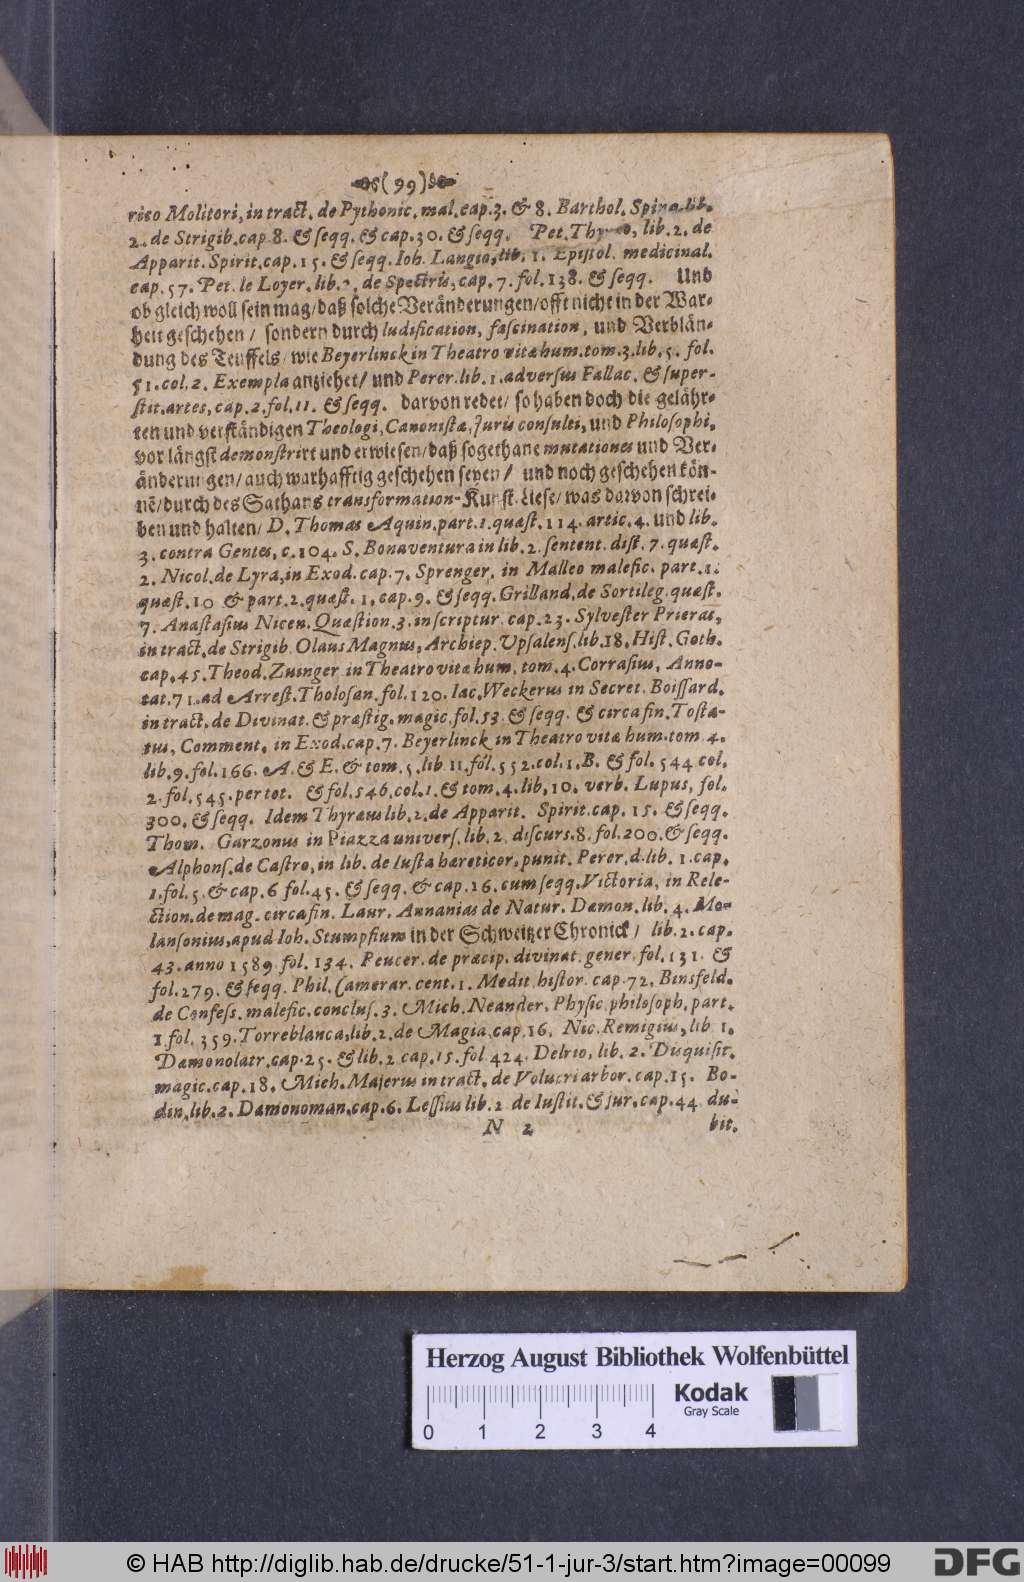 (99)
rico Molitori, in tract. de Pythonic. mal. cap. 3. & 8. Barthol. Spina lib.
2. de Strigib. cap. 8. & ſeqq. & cap. 30. & ſeqq. Pet. lib. 2. de
Apparit. Spirit. cap. 15. & ſeqq. Ioh. Langio, lib. 1. Epiſtol. medicinal.
cap. 57. Pet. le Loyer. lib. de Spectris, cap. 7. fol. 138. & ſeqq. Und
ob gleich woll ſein mag / daß ſolche Veränderungen / offt nicht in der War-
heit geſchehen / ſondern durch ludification, faſcination, und Verblän-
dung des Teuffels / wie Beyerlinck in Theatro vitæ hum. tom. 3. lib. 5. fol.
51. col. 2. Exempla anziehet / und Perer. lib. 1. adverſus Fallac. & ſuper-
ſtit. artes, cap. 2. fol. 11. & ſeqq. darvon redet / ſo haben doch die gelähr-
ten und verſtändigen Theologi, Canoniſtæ, Juris conſulti, und Philoſophi,
vor längſt demonſtrirt und erwieſen / daß ſogethane mutationes und Ver-
änderungen / auch warhafftig geſchehen ſeyen / und noch geſchehen kön-
nẽ / durch des Sathans transformation-Kunſt. Lieſe / was darvon ſchrei-
ben und halten / D. Thomas Aquin. part. 1. quæſt. 114. artic. 4. und lib.
3. contra Gentes, c. 104. S. Bonaventura in lib. 2. ſentent. diſt. 7. quæſt.
2. Nicol. de Lyra, in Exod. cap. 7. Sprenger. in Malleo malefic. part. 1.
quæſt. 10 & part. 2. quæſt. 1. cap. 9. & ſeqq. Grilland. de Sortileg. quæſt.
7. Anaſtaſius Nicen. Quæſtion. 3. in ſcriptur. cap. 23. Sylveſter Prierat,
in tract. de Strigib. Olaus Magnus, Archiep. Upſalenſ. lib. 18. Hiſt. Goth.
cap. 45. Theod. Zuinger in Theatro vitæ hum. tom. 4. Corraſius, Anno-
tat. 71. ad Arreſt. Tholoſan. fol. 120. Iac. Weckerus in Secret. Boiſſard.
in tract. de Divinat. & præſtig. magic. fol. 53. & ſeqq. & circa fin. Toſta-
tus, Comment. in Exod. cap. 7. Beyerlinck in Theatro vitæ hum. tom. 4.
lib. 9. fol. 166. A. & E. & tom. 5. lib. 11. fol. 552. col. 1. B. & fol. 544 col.
2. fol. 545. per tot. & fol. 546. col. 1. & tom. 4. lib. 10. verb. Lupus, fol.
300. & ſeqq. Idem Thyræus lib. 2. de Apparit. Spirit. cap. 15. & ſeqq.
Thom. Garzonus in Piazza univerſ. lib. 2. diſcurs. 8. fol. 200. & ſeqq.
Alphonſ. de Caſtro, in lib. de Iuſta hæreticor. punit. Perer. d. lib. 1. cap.
1. fol. 5. & cap. 6 fol. 45. & ſeqq. & cap. 16. cum ſeqq. Victoria, in Rele-
ction. de mag. circa fin. Laur. Annanias de Natur. Dæmon. lib. 4. Mo-
lanſonius, apud Ioh. Stumpfium in der Schweitzer Chronick / lib. 2. cap.
43. anno 1589. fol. 134. Peucer. de præcip. divinat. gener. fol. 131. &
fol. 279. & ſeqq. Phil. Camerar. cent. 1. Medit. hiſtor. cap. 72. Binsfeld.
de Confeſs. malefic. concluſ. 3. Mich. Neander. Phyſic. philoſoph. part.
1. fol. 359. Torreblanca, lib. 2. de Magia, cap. 16. Nic. Remigius, lib. 1.
Dæmonolatr. cap. 25. & lib. 2 cap. 15. fol. 424. Delrio, lib. 2. Diſquiſit.
magic. cap. 18. Mich. Majerus in tract. de Volucri arbor. cap. 15. Bo-
din. lib. 2. Dæmonoman. cap. 6. Leſſius lib. 2. de Iuſtit. & jur. cap. 44. du-
N 2 bit.
Herzog August Bibliothek Wolfenbüttel
Kodak
Gray Scale
0 1 2 3 4
© HAB http://diglib.hab.de/drucke/51-1-jur-3/start.htm?image=00099
DFG